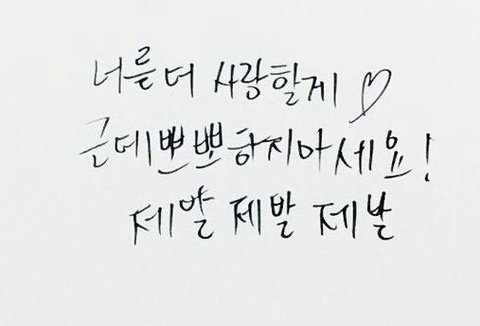 너를 더 사랑할게 ♡
근데 뽀뽀하지마세요!
제발 제발 제발